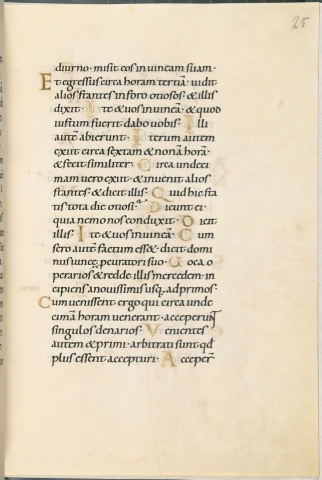 25
diurno · misit eos in vineam suam ·
E t egressus circa horam tertiā · vidit
alios stantes in foro otiosos · & illis
dixit · I te & vos in vineā · & quod
iustum fuerit dabo vobis · I lli
autē abierunt · I terum autem
exiit circa sextam & nonā horā ·
& fecit similiter · C irca undeci
mam vero exiit · & invenit alios
stantes · & dicit illis · Q uid hic sta
tis tota die otiosi · D icunt ei ·
quia nemo nos conduxit · D icit
illis · I te & vos in vineā · C um
sero autē factum ess& · dicit domi
nus vineę procuratori suo · U oca o
perarios & redde illis mercedem · in
cipiens a novissimis usq; ad primos ·
C um venissent ergo qui circa unde
cimā horam venerant · acceperunt
singulos denarios · V enientes
autem & primi · arbitrati sunt qd
plus essent accepturi · A cceper̄